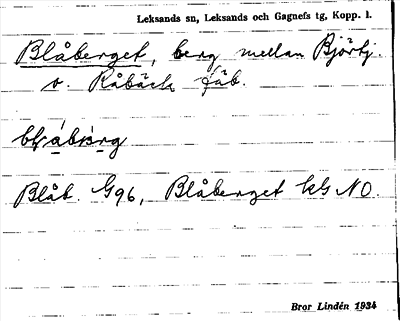 Leksands sn, Leksands och Gagnefs tg, Kopp. l.
Blåberget, berg mellan Björbj.
o. Råbäck fäb.
Blåb. G96, Blåberget kG NO.
Bror Lindén 1934